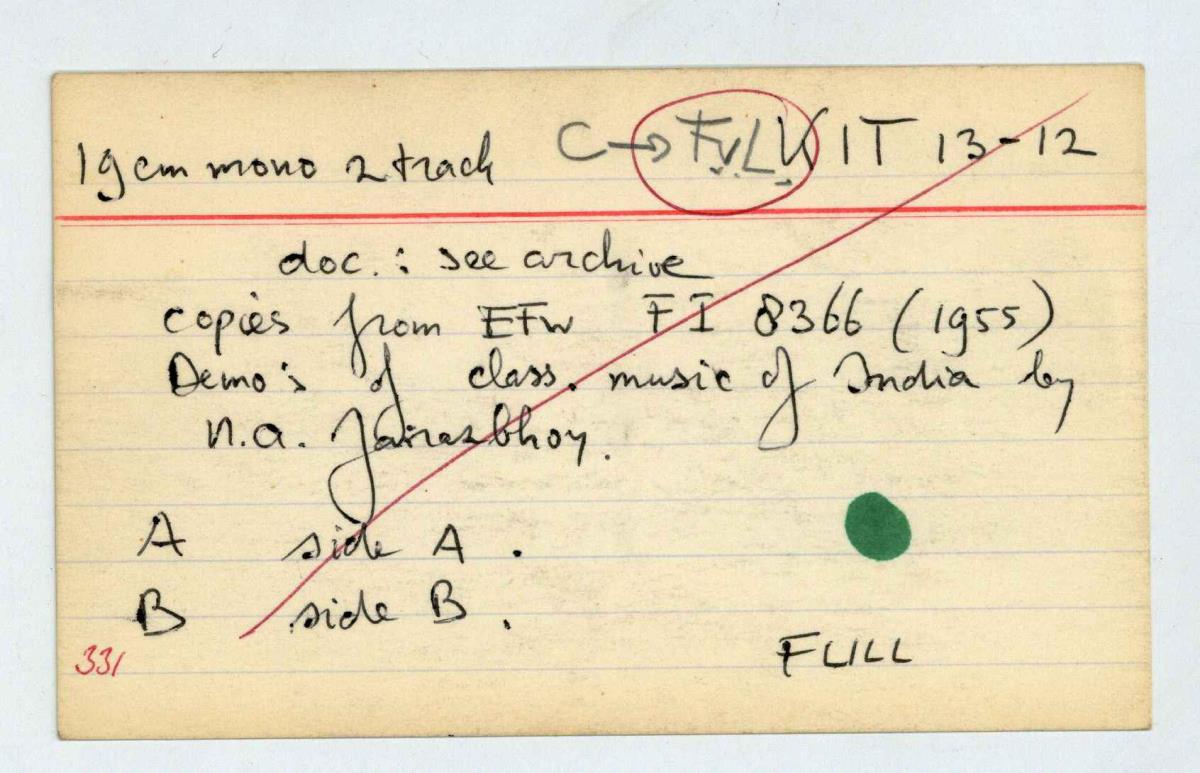 19 cm mono 2 track C→ F.v.L.V IT 13-12
doc. : see archive
copies from EFW FI 8366 (1955)
Demo's of class. music of India by
N.A. Jairazbhoy.
A side A.
B side B.
331
FLILL